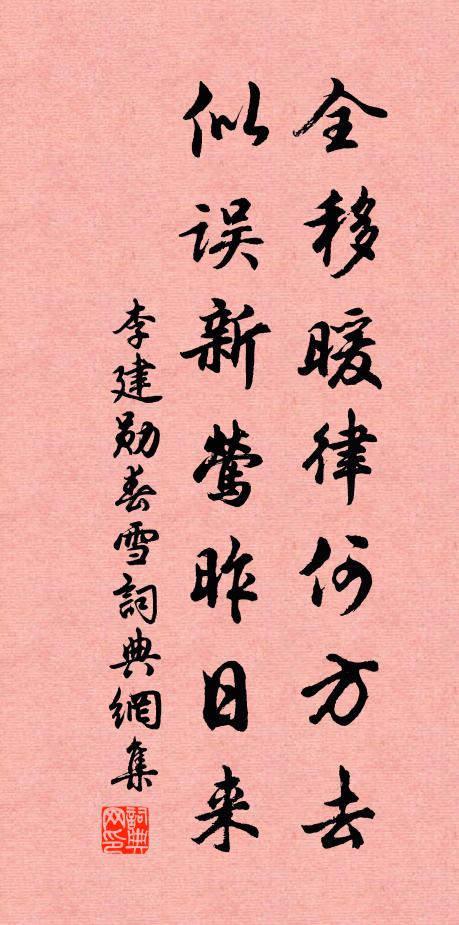 全移暖律何方去
似误新莺昨日来
李建勋春雪詞典網集
詞典网印